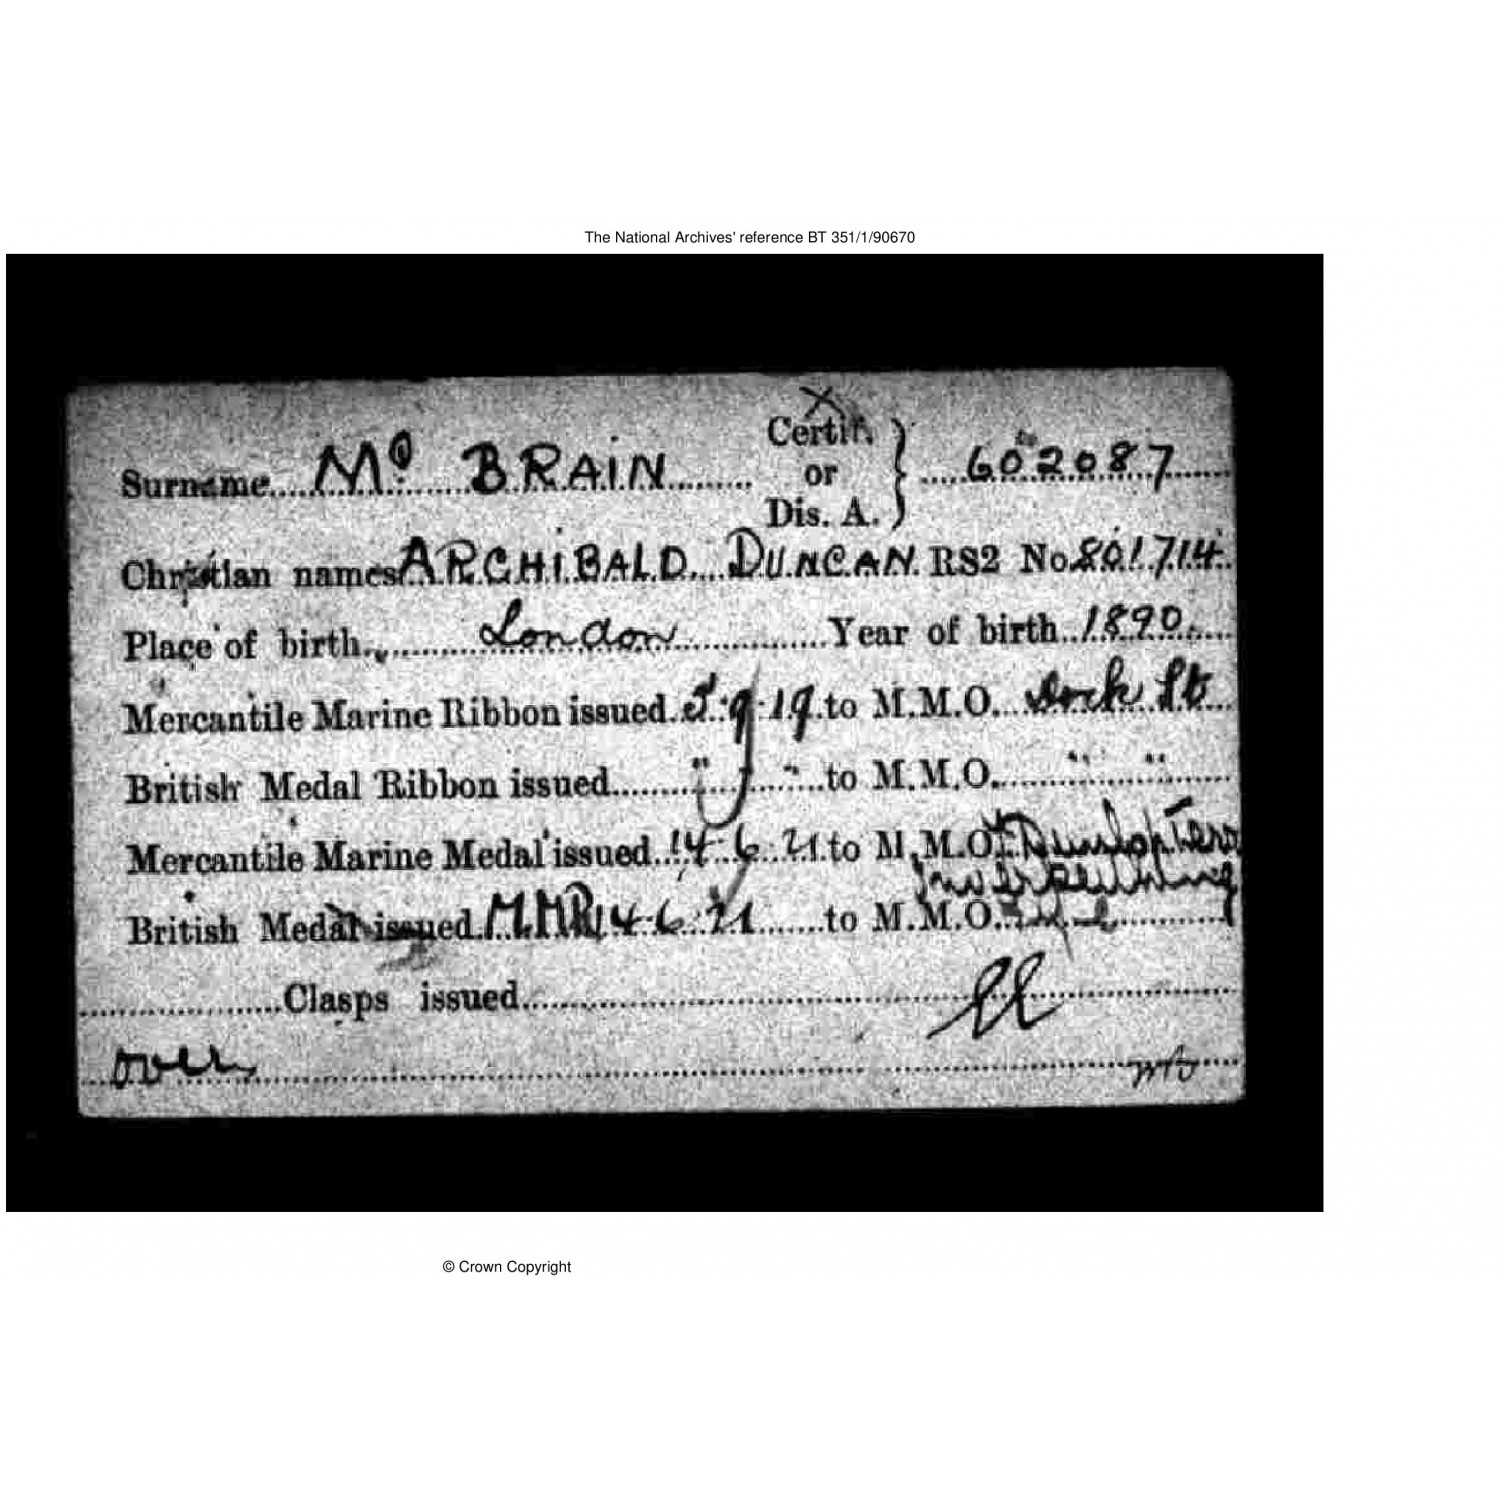 The National Archives' reference BT 351/1/90670
X
Surname Mc BRAIN Certif. or Dis. A. } 602087
Christian names ARCHIBALD DUNCAN RS2 No 801714
Place of birth London Year of birth 1890
Mercantile Marine Ribbon issued 5.9.19 to M.M.O. Dock St
British Medal Ribbon issued " " to M.M.O. " "
Mercantile Marine Medal issued 14.6.21 to M.M.O. Dunlop Terr
Inverkeithing
British Medal issued 14.6.21 to M.M.O.
Clasps issued
over
© Crown Copyright